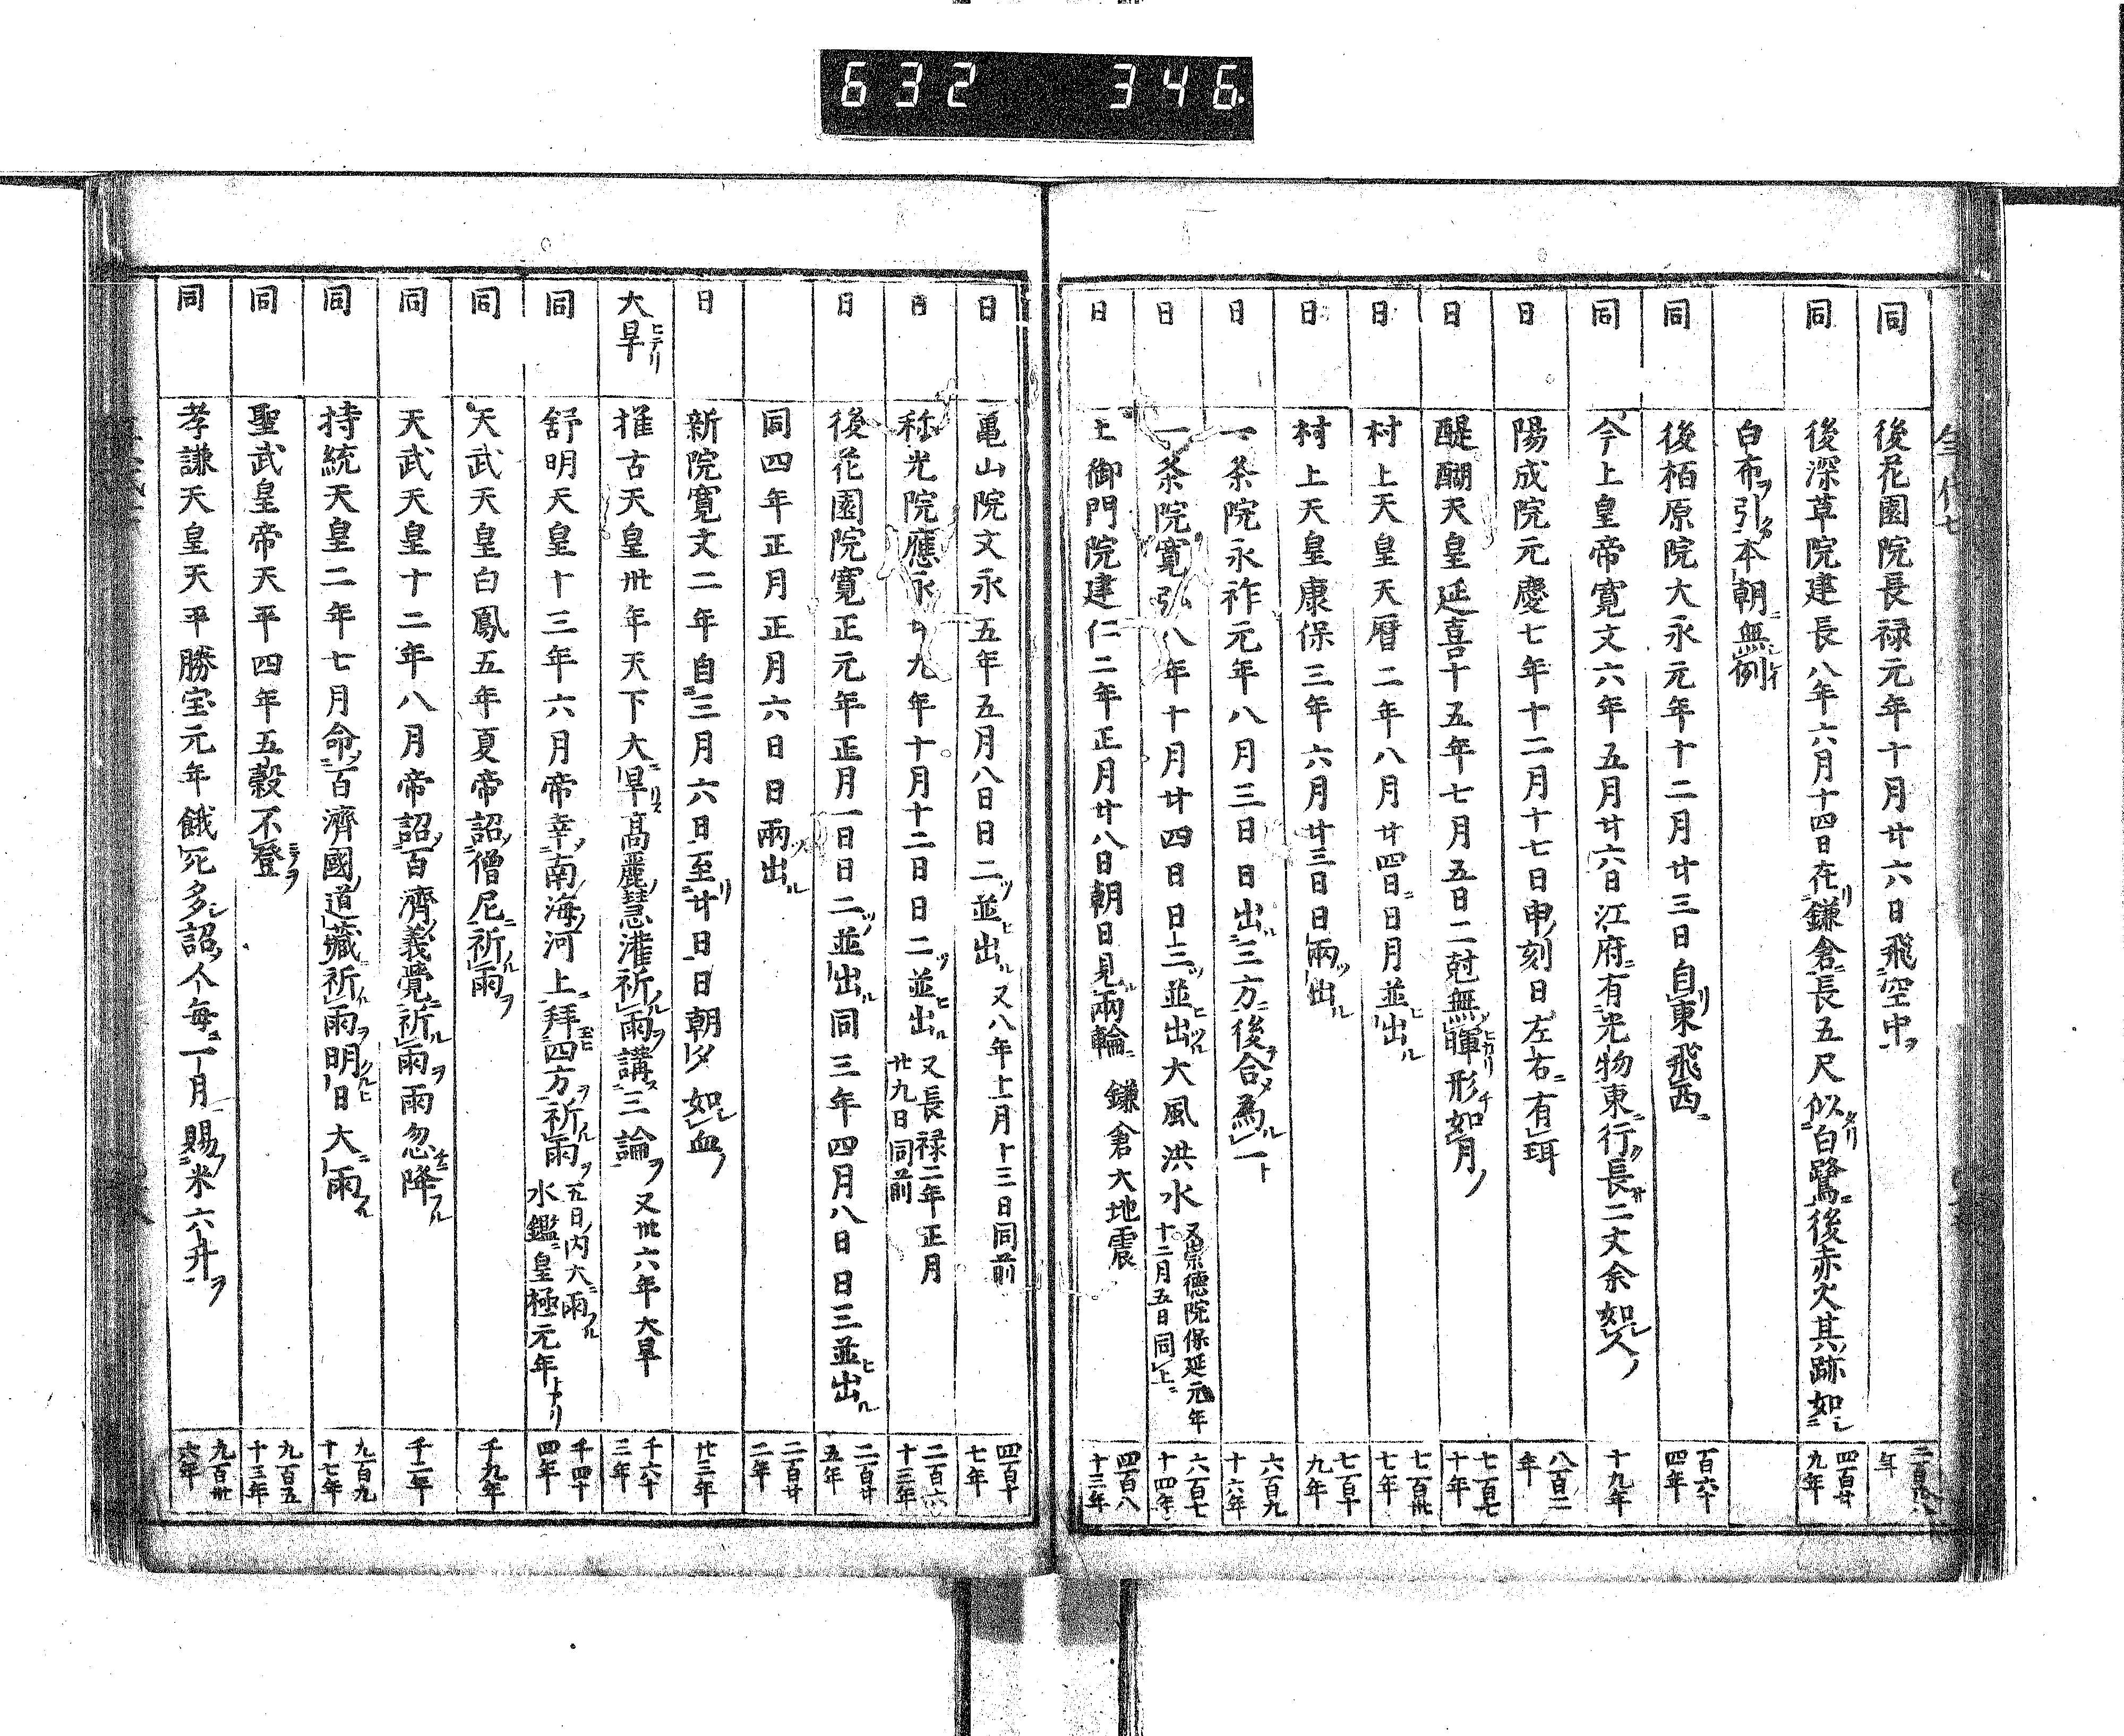 632 346
同 後花園院長禄元年十月廿六日飛空中ヲ
同 後深草院建長八年六月十四日在リ鎌倉ニ長五尺似タリ白鷺ニ後赤火其ノ跡如シ 四百廿九年
白布ヲ引クカ本朝ニ無例
同 後栢原院大永元年十二月廿三日自リ東飛西ニ 百六十四年
同 今上皇帝寛文六年五月廿六日江府ニ有光物東ニ行ク長サ二丈余如シ人ノ 十九年
日 陽成院元慶七年十二月十七日申ノ刻日左右ニ有珥 八百二年
日 醍醐天皇延喜十五年七月五日二尅無暉ヒカリ形チ如月ノ 七百七十年
日 村上天皇天暦二年八月廿四日ニ日月並ヒ出ル 七百卅七年
日 村上天皇康保三年六月廿三日日兩ツ出ル 七百十九年
日 一条院永祚元年八月三日日出ル三方ニ後合ヲ爲ル一ト 六百九十六年
日 一条院寛弘八年十月廿四日日三ツ並ヒ出ツル大風洪水 又崇徳院保延元年十二月五日同上ニ 六百七十四年
日 土御門院建仁二年正月廿八日朝日見ル兩輪ニ 鎌倉大地震 四百八十三年
日 亀山院文永五年五月八日日二ツ並ヒ出ル 又八年十一月十三日同前 四百十七年
日 称光院應永廿九年十月十二日日二ツ並ヒ出ル 又長禄二年正月廿九日同前 二百六十三年
日 後花園院寛正元年正月一日日二ツ並出ル同三年四月八日日三並ヒ出ル 二百廿五年
同四年正月正月六日日兩ツ出ル 二百廿二年
日 新院寛文二年自三月六日至リ廿日日朝夕如シ血ノ 廿三年
大旱ヒテリ 推古天皇卅年天下大ニ旱リス高麗ノ慧灌祈ル雨ヲ講ス三論ヲ 又卅六年大旱 千六十三年
同 舒明天皇十三年六月帝幸ノ南海ノ河上ニ拜四方ヲ祈ル雨ヲ 五日ノ内大ニ雨フル 水鑑ニ皇極元年トナリ 千四十四年
同 天武天皇白鳳五年夏帝詔ノ僧尼ニ祈ル雨ヲ 千九年
同 天武天皇十二年八月帝詔ノ百濟ノ義覺ニ祈ル雨ヲ雨忽チニ降フル 千二年
同 持統天皇二年七月命ノ百濟國ノ道藏ニ祈ル雨ヲ明クルヒ日大ニ雨フル 九百九十七年
同 聖武皇帝天平四年五穀不登ミノラ 九百五十三年
同 孝謙天皇天平勝宝元年餓死多シ詔ノ人毎ニ一月賜ノ米六升ヲ 九百卅六年